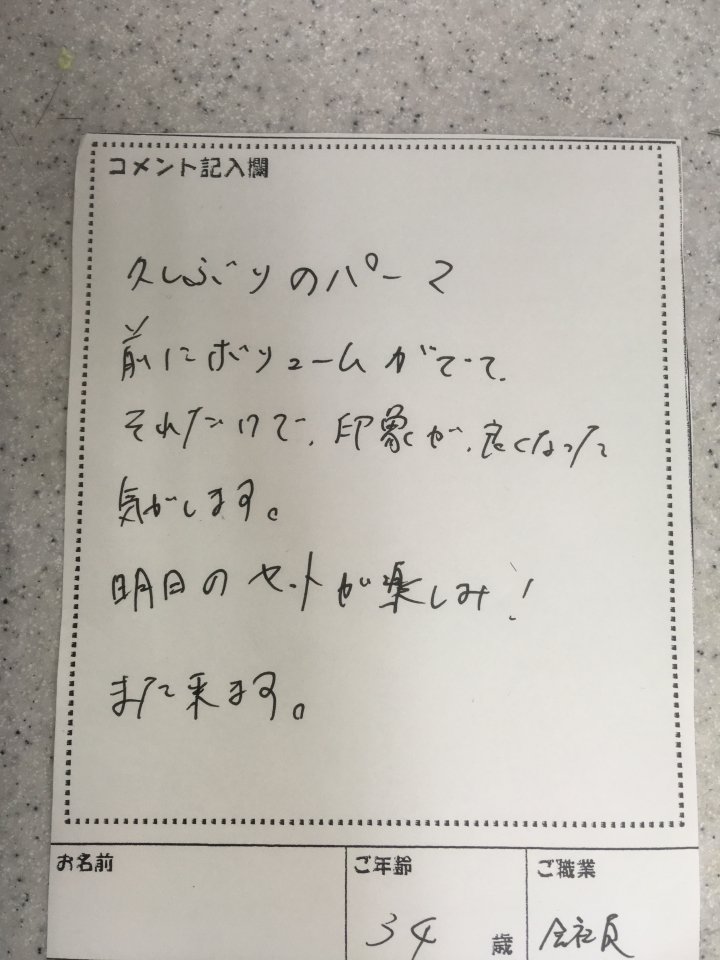 コメント記入欄
久しぶりのパーマ
前にボリュームがでて、
それだけで、印象が、良くなった
気がします。
明日のセットが楽しみ!
また来ます。
お名前
ご年齢
34 歳
ご職業
会社員